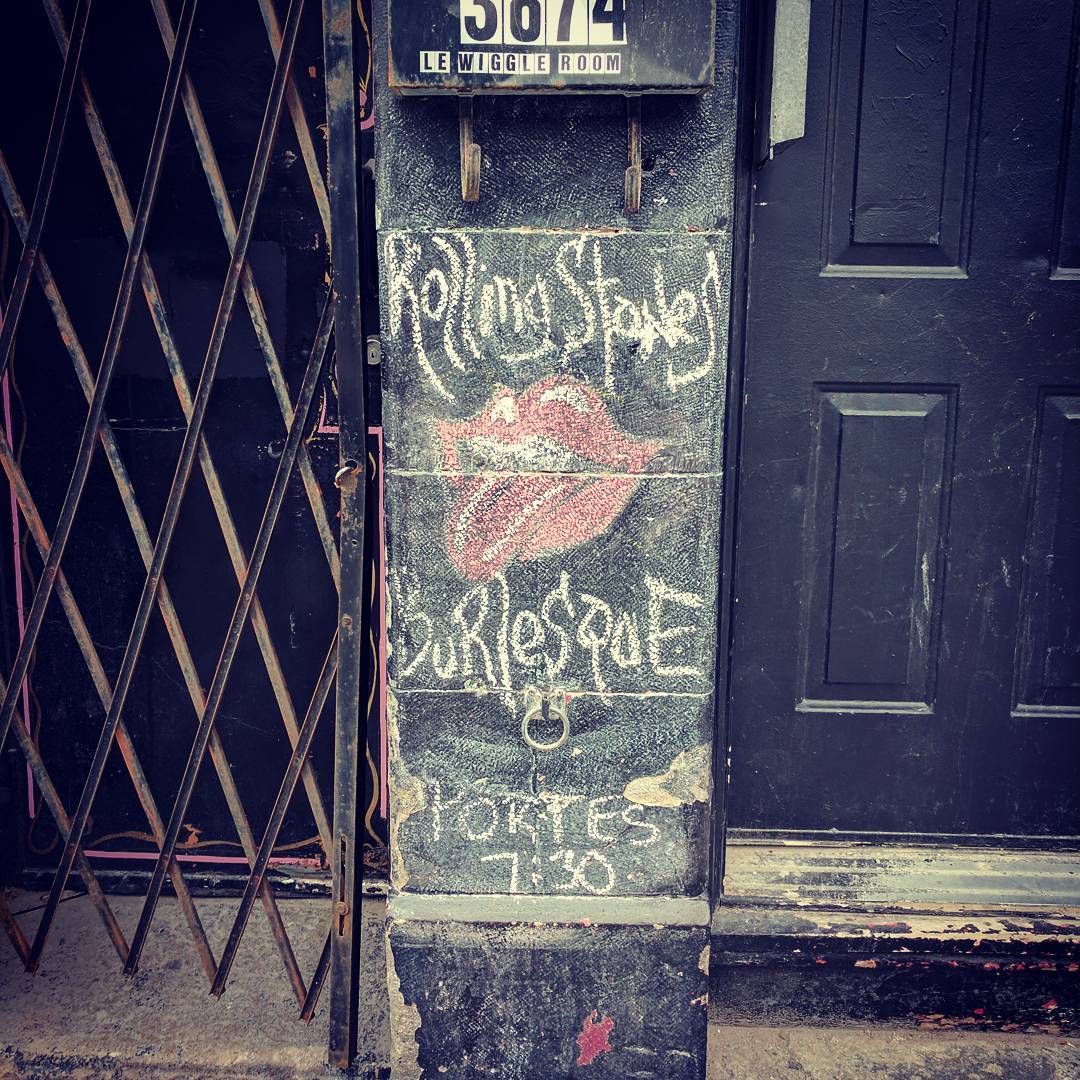 3674
LE WIGGLE ROOM
Rolling Stones
BURlesqUE
PORTES
7:30